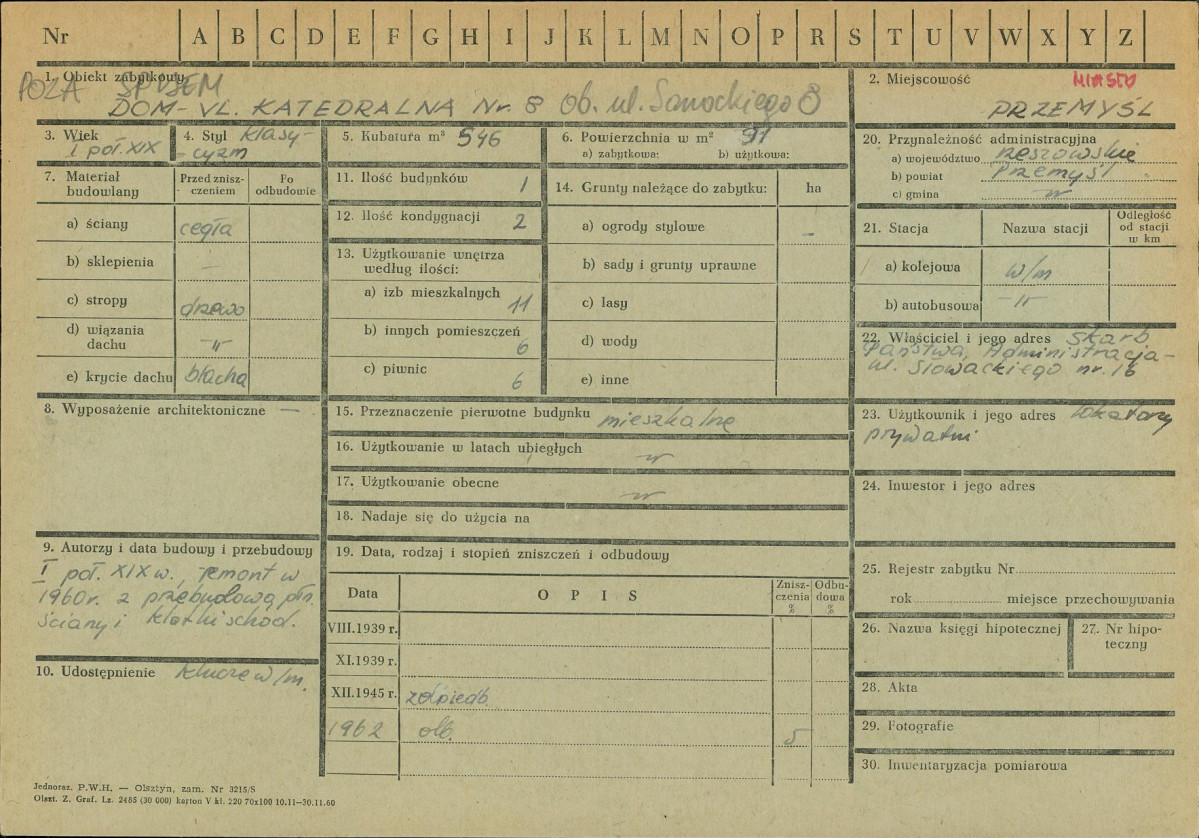 Nr A B C D E F G H I J K L M N O P R S T U V W X Y Z
1. Obiekt zabytkowy
POZA SPISEM
DOM - UL. KATEDRALNA Nr. 8 ob. ul. Sanockiego 8
2. Miejscowość MIASTO
PRZEMYŚL
3. Wiek
I poł. XIX
4. Styl klasy-
-cyzm
5. Kubatura m³ 546
6. Powierzchnia w m² 91
a) zabytkowa: b) użytkowa:
7. Materiał budowlany
Przed znisz-
czeniem
Po
odbudowie
a) ściany cegła
b) sklepienia —
c) stropy drzewo
d) wiązania
dachu -"-
e) krycie dachu blacha
8. Wyposażenie architektoniczne —
9. Autorzy i data budowy i przebudowy
I poł. XIX w., remont w
1960r. z przebudową płn.
ściany i klatki schod.
10. Udostępnienie klucze w/m.
11. Ilość budynków 1
12. Ilość kondygnacji 2
13. Użytkowanie wnętrza
według ilości:
a) izb mieszkalnych 11
b) innych pomieszczeń 6
c) piwnic 6
14. Grunty należące do zabytku: ha
a) ogrody stylowe —
b) sady i grunty uprawne
c) lasy
d) wody
e) inne
15. Przeznaczenie pierwotne budynku mieszkalne
16. Użytkowanie w latach ubiegłych -"-
17. Użytkowanie obecne -"-
18. Nadaje się do użycia na
19. Data, rodzaj i stopień zniszczeń i odbudowy
Data OPIS Znisz-
czenia
% Odbu-
dowa
%
VIII.1939 r.
XI.1939 r.
XII.1945 r.
1962 5
20. Przynależność administracyjna
a) województwo rzeszowskie
b) powiat Przemyśl
c) gmina -"-
21. Stacja Nazwa stacji Odległość
od stacji
w km
a) kolejowa w/m
b) autobusowa -"-
22. Właściciel i jego adres Skarb
Państwa, Administracja -
ul. Słowackiego nr. 16
23. Użytkownik i jego adres lokatorzy
prywatni
24. Inwestor i jego adres
25. Rejestr zabytku Nr
rok miejsce przechowywania
26. Nazwa księgi hipotecznej
27. Nr hipo-
teczny
28. Akta
29. Fotografie
30. Inwentaryzacja pomiarowa
Jednoraz. P.W.H. — Olsztyn, zam. Nr 3215/S
Olszt. Z. Graf. Lz. 2485 (30 000) karton V kl. 220 70x100 10.11—30.11.60